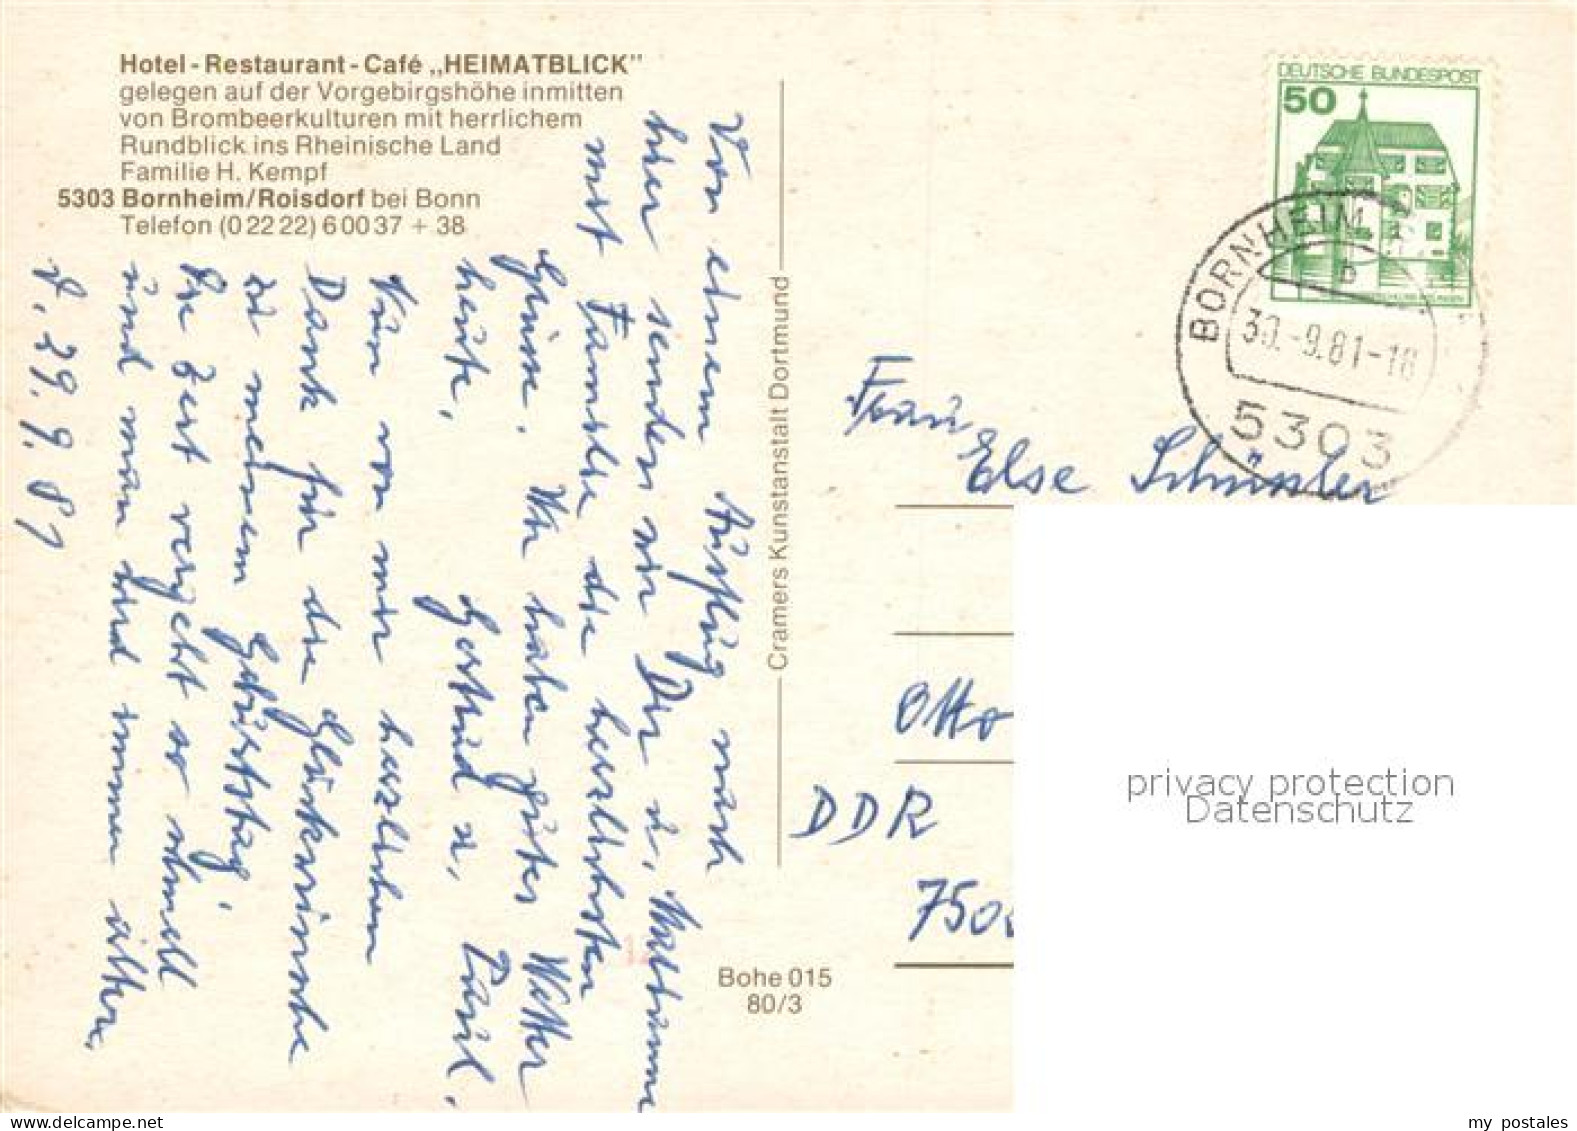 Hotel - Restaurant - Café „HEIMATBLICK"
gelegen auf der Vorgebirgshöhe inmitten
von Brombeerkulturen mit herrlichem
Rundblick ins Rheinische Land
Familie H. Kempf
5303 Bornheim/Roisdorf bei Bonn
Telefon (0 22 22) 6 00 37 + 38
Von einem Ausflug nach
hier senden wir Dir u.
mit Familie die herzlichsten
Grüsse. Wir haben gutes Wetter
heute, Gertrud u. Paul.
Nun von mir herzlichen
Dank für die Glückwünsche
zu meinem Geburtstag.
Die Zeit vergeht so schnell
und man wird immer älter.
d. 29.9.81
Cramers Kunstanstalt Dortmund
Bohe 015
80/3
DEUTSCHE BUNDESPOST
50
BORNHEIM
b
30.-9.81-18
5303
Frau
Else Schüssler
Otto
DDR
750
privacy protection
Datenschutz
my postales